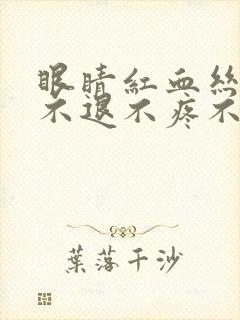 眼睛紅血絲
不退不疼不
葉落千沙